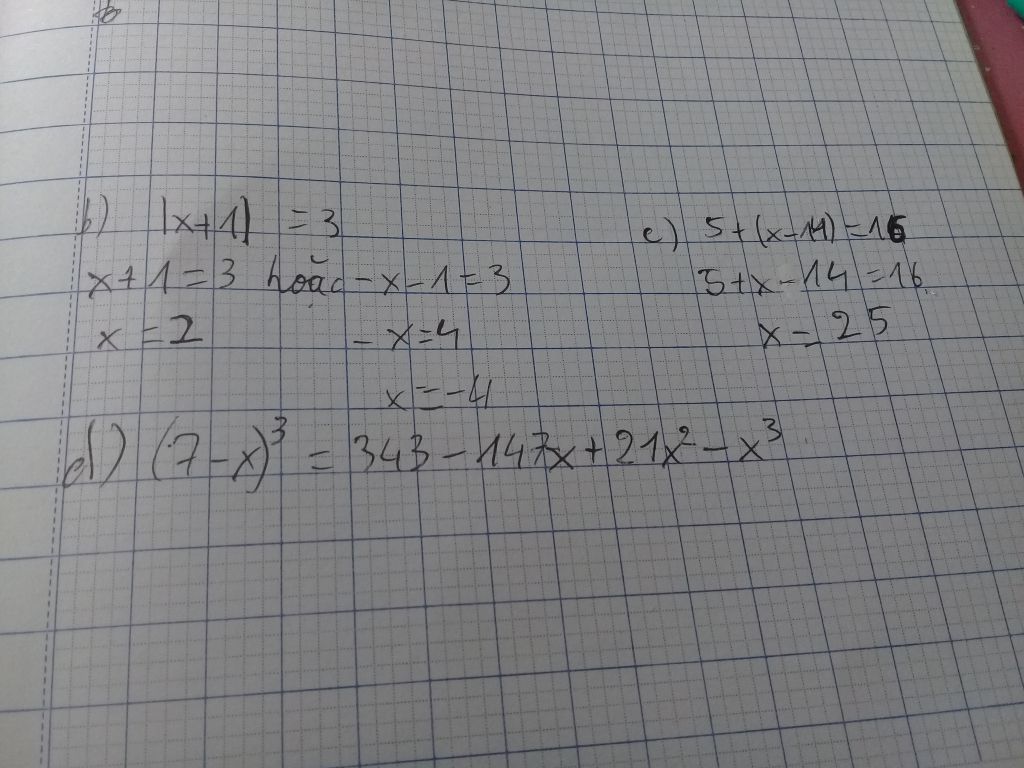 b) |x+1| = 3
x+1=3 hoặc -x-1=3
x=2 -x=4
x=-4
c) 5+(x-14)=16
5+x-14=16
x=25
d) (7-x)³ = 343-147x+21x²-x³